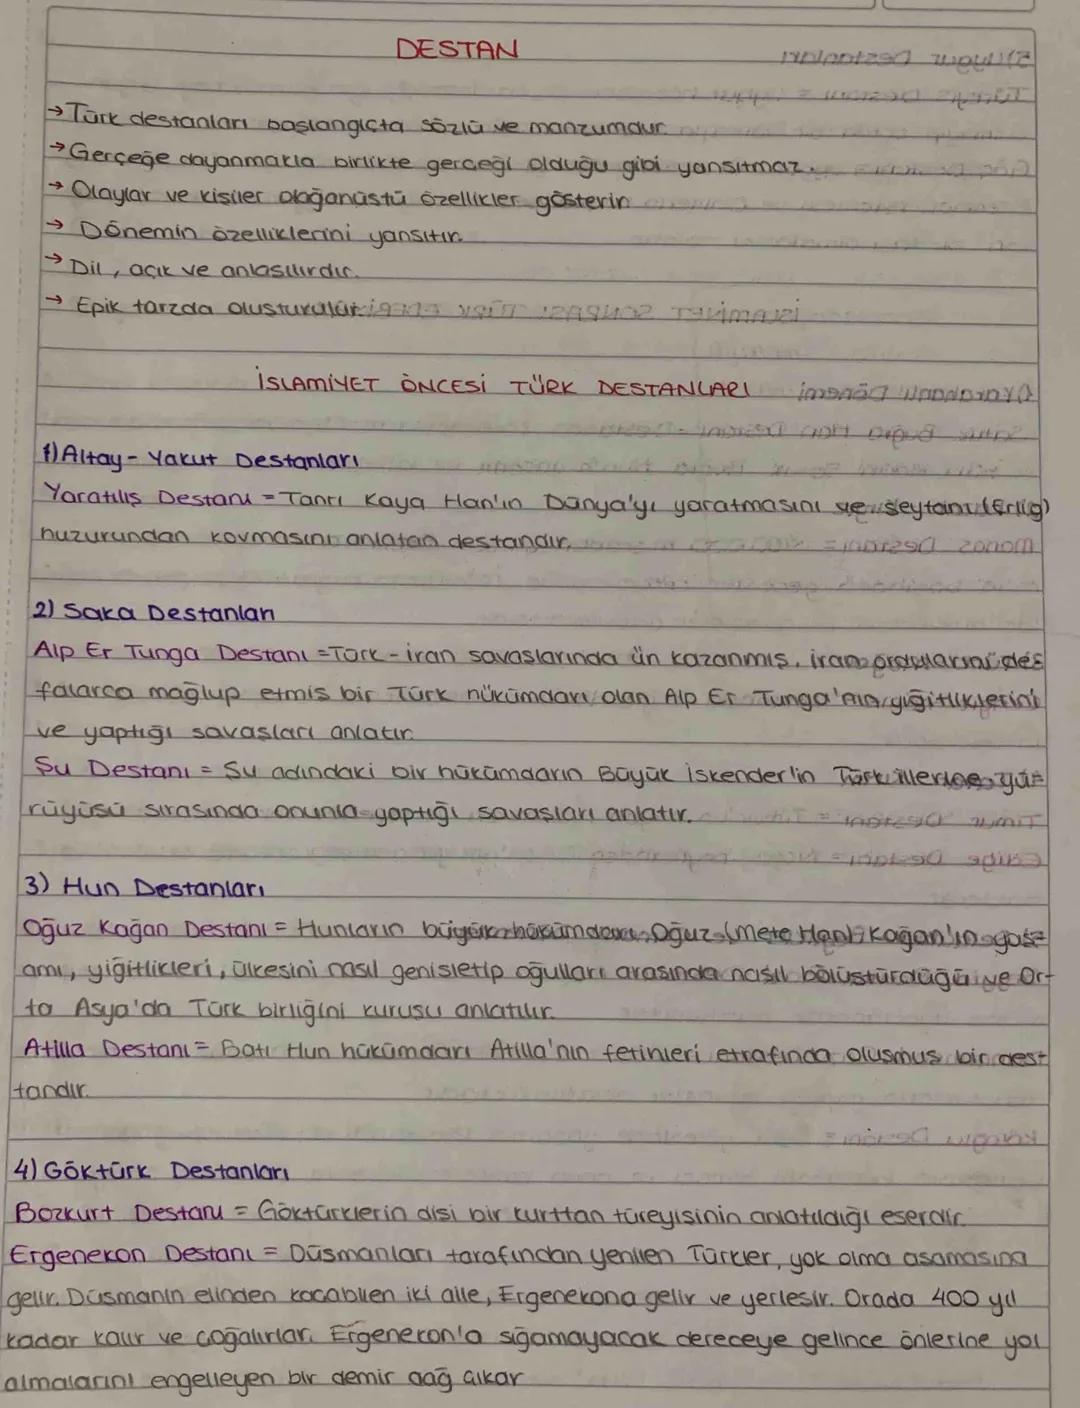 DESTAN
→ Türk destanları başlangıçta sözlü ve manzumdur.
→ Gerçeğe dayanmakla birlikte gerçeği olduğu gibi yansıtmaz.
→ Olaylar ve kişiler olağanüstü özellikler gösterir.
→ Dönemin özelliklerini yansıtır.
→ Dil, açık ve anlaşılırdır.
→ Epik tarzda oluşturulur.
İSLAMİYET ÖNCESİ TÜRK DESTANLARI
1) Altay - Yakut Destanları
Yaratılış Destanı = Tanrı Kaya Han'ın Dünya'yı yaratmasını ve şeytanı (Erlig)
huzurundan kovmasını anlatan destandır.
2) Saka Destanları
Alp Er Tunga Destanı = Türk - iran savaşlarında ün kazanmış, iran ordularını def
falarca mağlup etmiş bir Türk hükümdarı olan Alp Er Tunga'nın yiğitliklerini
ve yaptığı savaşları anlatır.
Şu Destanı = Şu adındaki bir hükümdarın Büyük İskender'in Türk illerine yü-
rüyüşü sırasında onunla yaptığı savaşları anlatır.
3) Hun Destanları
Oğuz Kağan Destanı = Hunların büyük hükümdarı Oğuz (Mete Han) Kağan'ın yaş-
amı, yiğitlikleri, ülkesini nasıl genişletip oğulları arasında nasıl bölüştürdüğü ve Or-
ta Asya'da Türk birliğini kuruşu anlatılır.
Atilla Destanı = Batı Hun hükümdarı Atilla'nın fetihleri etrafında oluşmuş bir des-
tandır.
4) Göktürk Destanları
Bozkurt Destanı = Göktürklerin dişi bir kurttan türeyişinin anlatıldığı eserdir.
Ergenekon Destanı = Düşmanları tarafından yenilen Türkler, yok olma aşamasına
gelir. Düşmanın elinden kaçabilen iki aile, Ergenekona gelir ve yerleşir. Orada 400 yıl
kadar kalır ve çoğalırlar. Ergenekon'a sığamayacak dereceye gelince önlerine yol
almalarını engelleyen bir demir dağ çıkar